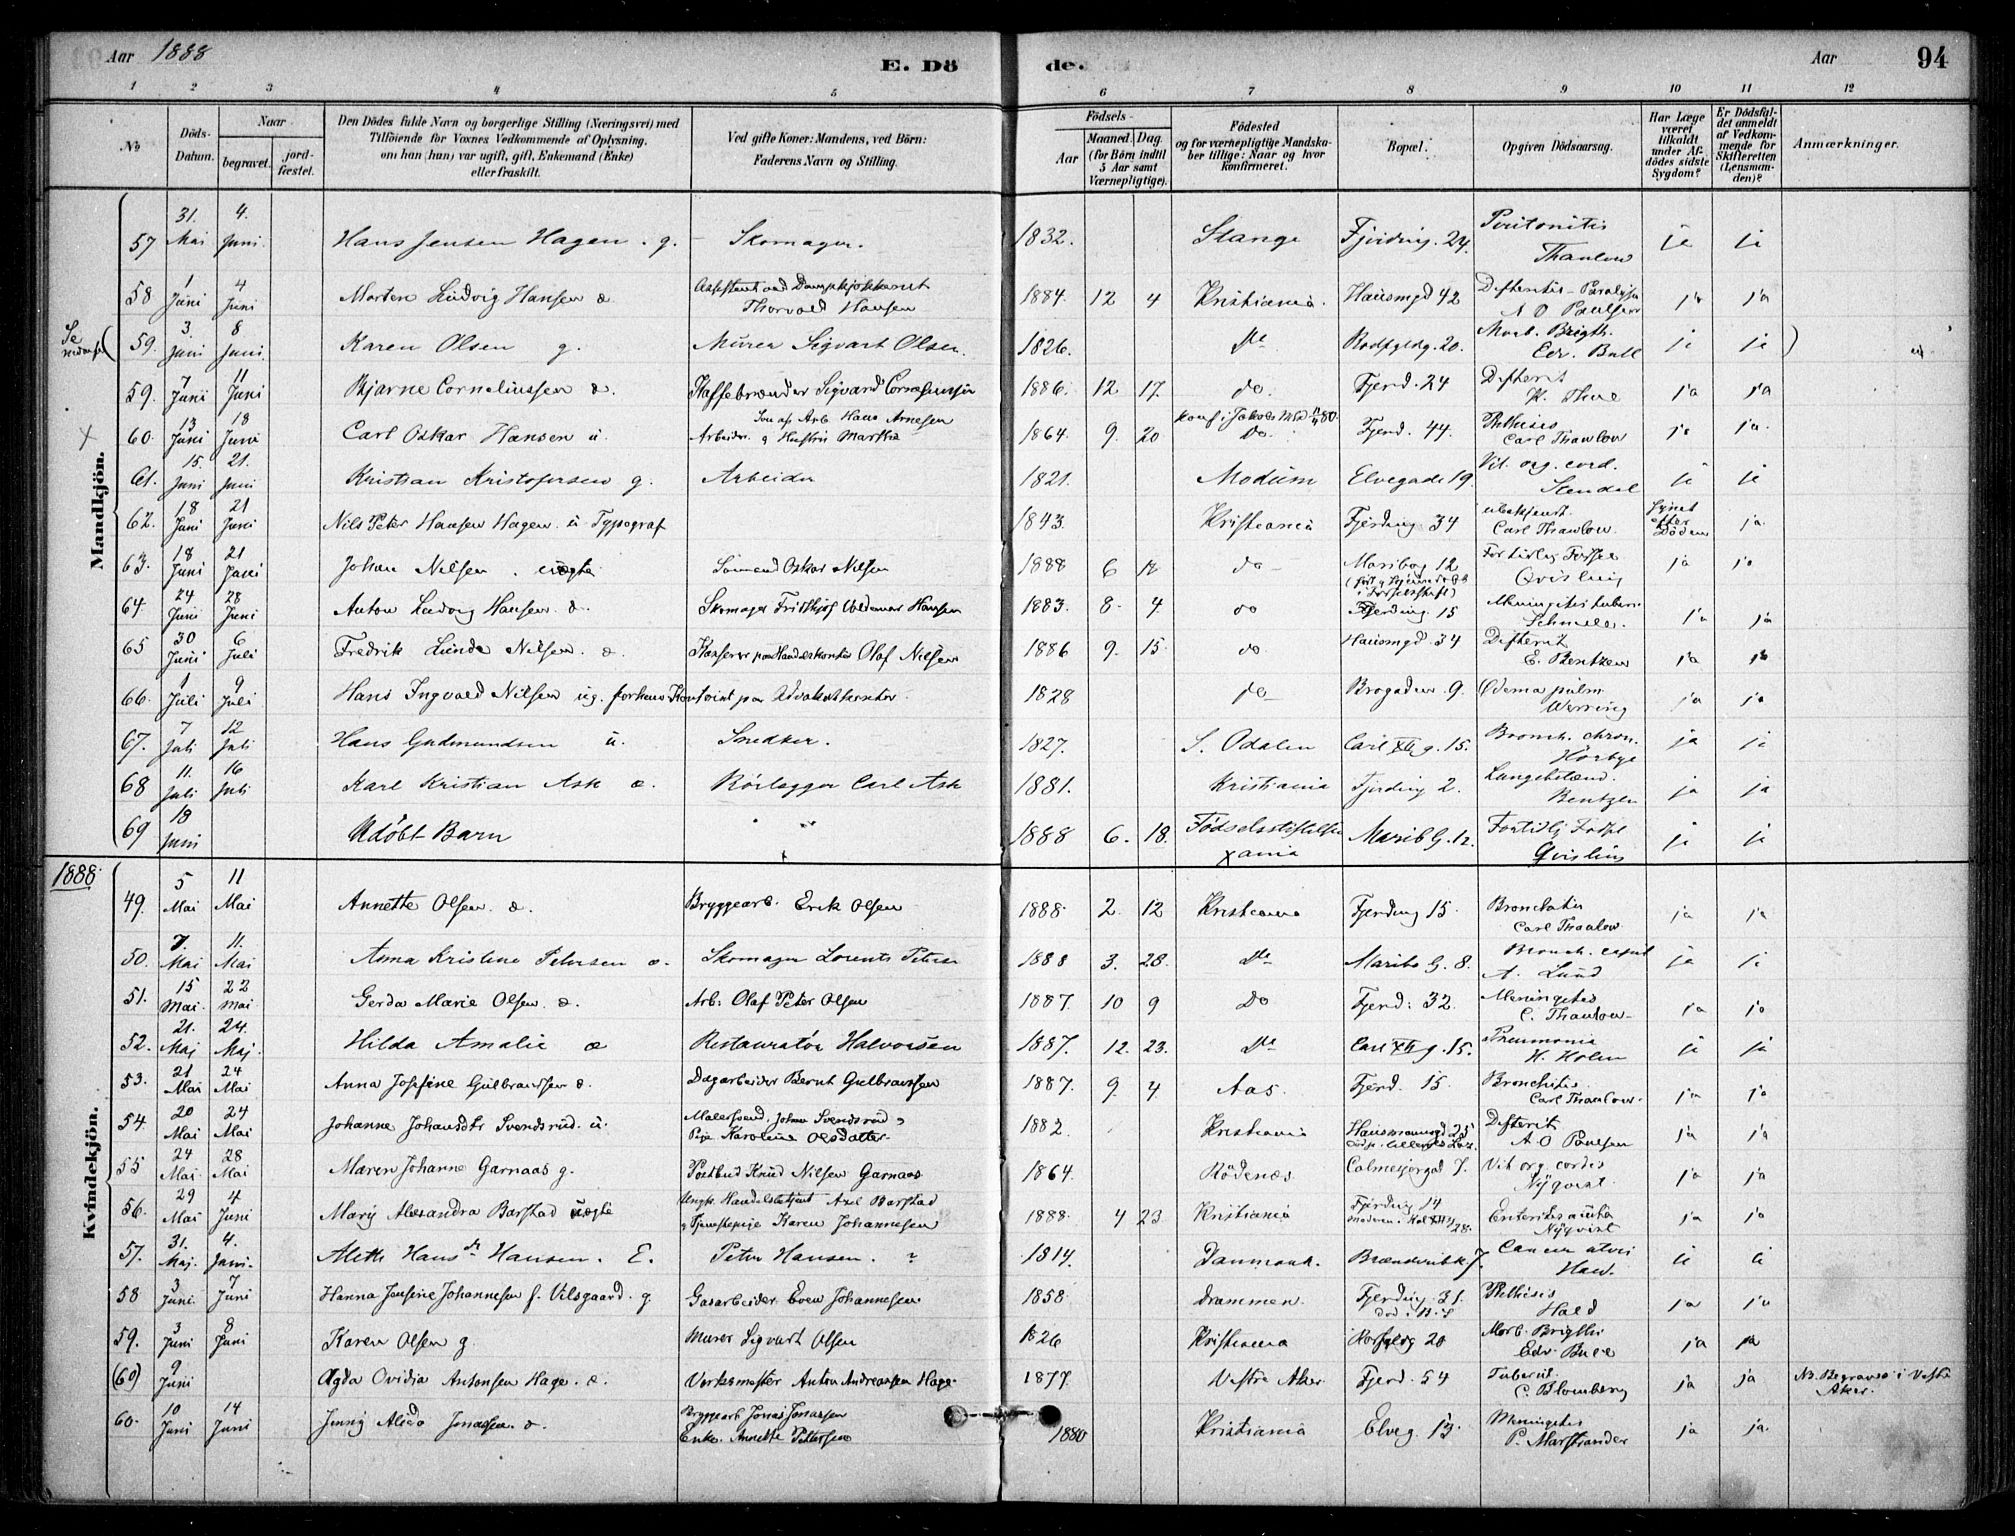 Aar 1888
E. Döde.
Aar
94
1 2 3 4 5 6 7 8 9 10 11 12
No
Döds-Datum.
Naar
begravet.
jord-fæstet.
Den Dödes fulde Navn og borgerlige Stilling (Næringsvei) med
Tilföiende for Voxnes Vedkommende af Oplysning,
om han (hun) var ugift, gift, Enkemand (Enke)
eller fraskilt.
Ved gifte Koner: Mandens, ved Börn:
Faderens Navn og Stilling.
Födsels-
Aar
Maaned. Dag.
(for Börn indtil
5 Aar samt
Værnepligtige).
Födested
og for værnepligtige Mandska-
ber tillige: Naar og hvor
konfirmeret.
Bopæl.
Opgiven Dödsaarsag.
Har Læge
været
tilkaldt
under Af-
dödes sidste
Sygdom?
Er Dödsfal-
det anmeldt
af Vedkom-
mende for
Skifteretten
(Lensman-
den)?
Anmærkninger.
Mandkjön.
57 31. Mai 4. Juni Hans Jensen Hagen. g. Skomager. 1832. Stange Fjerding. 24. Peritonitis Thaulow ja ja
58 1 Juni 4 Juni Morten Ludvig Hansen æ Assistent ved Dampkjøkkenet Thorvald Hansen 1884. 12 4 Kristiania. Hausmgd 42 Difteritis - Paralyse A O Paulsen ja ja
Se nedenfor
59. 3. Juni 8 Juni Karen Olsen g. Murer Sigvart Olsen. 1826. do Rosfgldg. 20. Morb. Brigth. Edv. Bull ja ja
59. 7 Juni 11 Juni Bjarne Corneliussen æ. Kaffebrænder Sigvard Corneliussen 1886. 12 17. do. Fjerd. 24 Difterit ja ja
60. 13 Juni 18 Juni Carl Oskar Hansen u. Søn af Arb Hans Arnesen Arbeider. g Hustru Marthe 1864. 9. 20 do. Fjerd. 44. Phthisis Carl Thaulow ja ja
61. 15. Juni 21. Juni Kristian Kristofersen g. Arbeider 1821. Modum Elvegade 19. Vit. org. cord. Stendal ja ja
62. 18 Juni 21 Juni Nils Peter Hansen Hagen. u Typograf 1843. Kristiania Fjerding 34 ubekjendt. Carl Thaulow. Synet efter Døden ja
63. 18 Juni 21 Juni Johan Nilsen. uægte Sømand Oskar Nilsen 1888 6 18 do Maribog 12 For tidlig Fødsel Qvisling ja ja
64 24 Juni 28 Juni Anton Ludvig Hansen. æ. Skomager Fridthjof Valdemar Hansen 1883. 8. 4. do Fjerding. 15 Meningitis tuberc. ja ja
65 30 Juni 6 Juli Fredrik Lunde Nilsen. æ. Olaf Nilsen 1886 9. 15. do Hausmgd 34 Difterit E. Bentzen ja ja
66. 1 Juli 9 Juli Hans Ingvald Nilsen ug. forhenv. Kontorist paa Advokatkontor. 1828 do Brogaden. 9. Ødema pulm. Werring ja ja
67. 7 Juli 12 Juli Hans Gudmundsen u. Snedker. 1827. S. Odalen Carl XII g. 15. Bronch. chron. Hørbye ja ja
68 11. Juli 16 Juli Karl Kristian Ask æ. Rørlægger Carl Ask 1881. Kristiania Fjerding 2. Lungebetænd. Bentzen ja ja
69 18 Juni Udøbt Barn 1888 6. 18. Fødselsstiftelsen Xania Marib G. 12. Fortidlig Fødsel Qvisling ja ja
1888
Kvindekjön.
49. 5 Mai 11 Mai Annette Olsen. æ. Bryggearb. Erik Olsen 1888 2. 12 Kristiania Fjerding 15. Bronchitis Carl Thaulow. ja ja
50. 7. Mai 11. Mai Anna Kristine Petersen æ. Skomager Lorents Petersen 1888 3. 28. do Maribo G. 8. Bronch. capil A. Lund ja ja
51. 15 Mai. 22 Mai Gerda Marie Olsen. æ. Arb: Olaf Peter Olsen 1887. 10 9 do Fjerd: 32. Meningitis C. Thaulow- ja ja
52. 21. Maj 24. Maj. Hilda Amalie æ Restauratør Halvorsen 1887. 12. 23. do Carl XII g. 15. Pneumonia H. Holm ja ja
53. 21 Mai 24 Mai Anna Josefine Gulbrandsen æ. Dagarbeider Bernt Gulbransen 1887. 9. 4. Aas. Fjerd. 15. Bronchitis. Carl Thaulow. ja ja
54 20 Mai 24 Mai Johanne Johansdtr Svendsrud. u. Malersvend. Johan Svendsrud Pige Karoline Olsdatter. 1882. Kristiania Hausmannsgd 25 Difterit A O Paulsen ja ja
55 24 Mai. 28 Mai Maren Johanne Garnaas g. Postbud Knud Nilsen Garnaas 1864. Rødenæs. Calmeyergad 7. Vit org. cordis Nyqvist. ja ja
56. 29 Mai 4 Juni Mary Alexandra Barstad uægte Ungk. Handelsbetjent Axel Barstad g Tjenestepige Karen Johannesen 1888. 4 23. Kristiania Fjerding 14 Enteritis acuta Nyqvist ja ja
57. 31. Maj. 4. Juni. Aleth Hans dr Hansen. E. Peter Hansen. ? 1814. Danmark. Cancer Hald. ja ja
58 3 Juni. 7 Juni Hanna Jensine Johannesen f. Vilsgaard. g Gasarbeider Even Johannesen 1858 Drammen. Fjerding 31. Phthisis Hald ja ja
59. 3 Juni 8 Juni Karen Olsen g. Murer Sigvart Olsen 1826 Kristiania Rosfgldg 20 Morb. Brigthi Edv. Bull ja ja
(60) 9 Juni Agda Ovidia Antonsen Hage. æ. Verksmester Anton Andreassen Hage. 1877. Vestre Aker. Fjerd. 54 Tubercul. C. Blomberg ja ja Nb. Begravet i Vestre Aker.
60. 10 Juni 14 Juni Jenny Alida Jonassen. æ. Bryggearb Jonas Jonassen Enke. Annette Pettersen 1880 Kristiania Elveg. 13. Meningitis P. Marstrander ja ja.